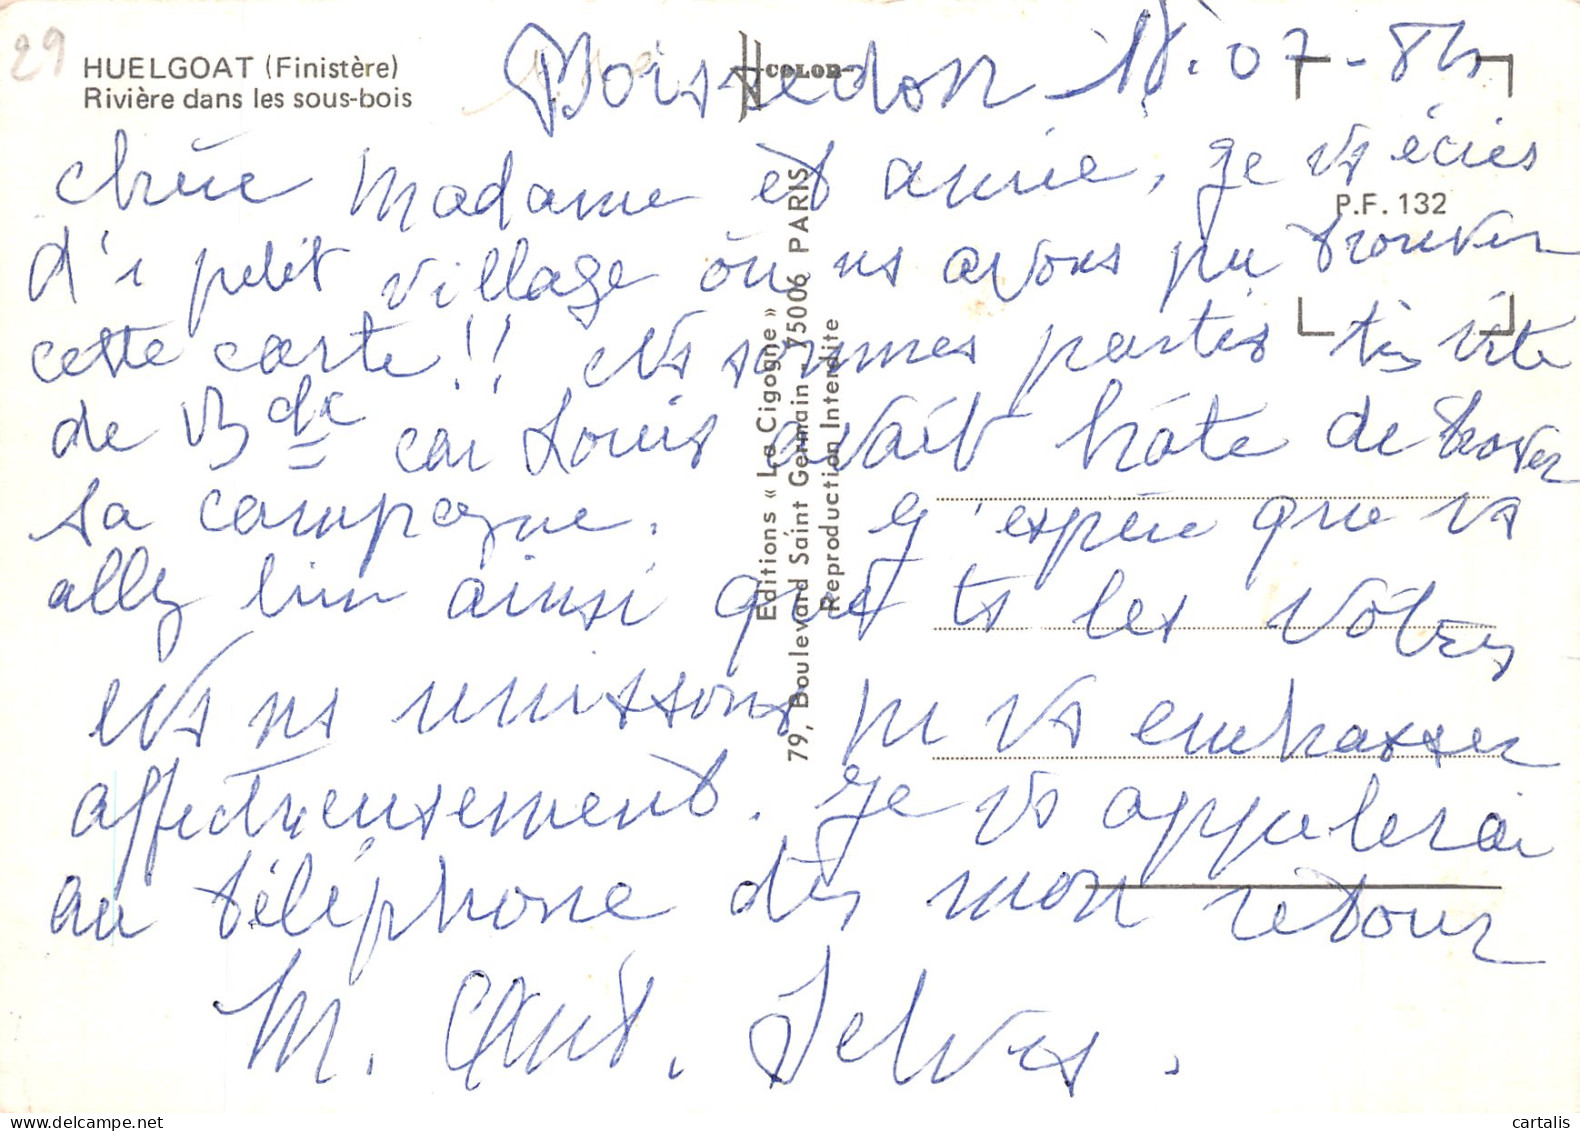 29
HUELGOAT (Finistère)
Rivière dans les sous-bois
COLOR
07-
P.F. 132
chère Madame et amie, je vs écris
d'1 petit village où ns avons pu trouver
cette carte!! Ns sommes partis très vite
de car Louis avait hâte de
sa campagne. J'espère que vs
allez bien ainsi que ts les vôtres
Ns ns unissons pr vs embrasser
affectueusement. Je vs appelerai
au téléphone dès mon retour
M.
Editions « La Cigogne »
79, Boulevard Saint Germain - 75006 PARIS
Reproduction Interdite
cartalis
www.delcampe.net